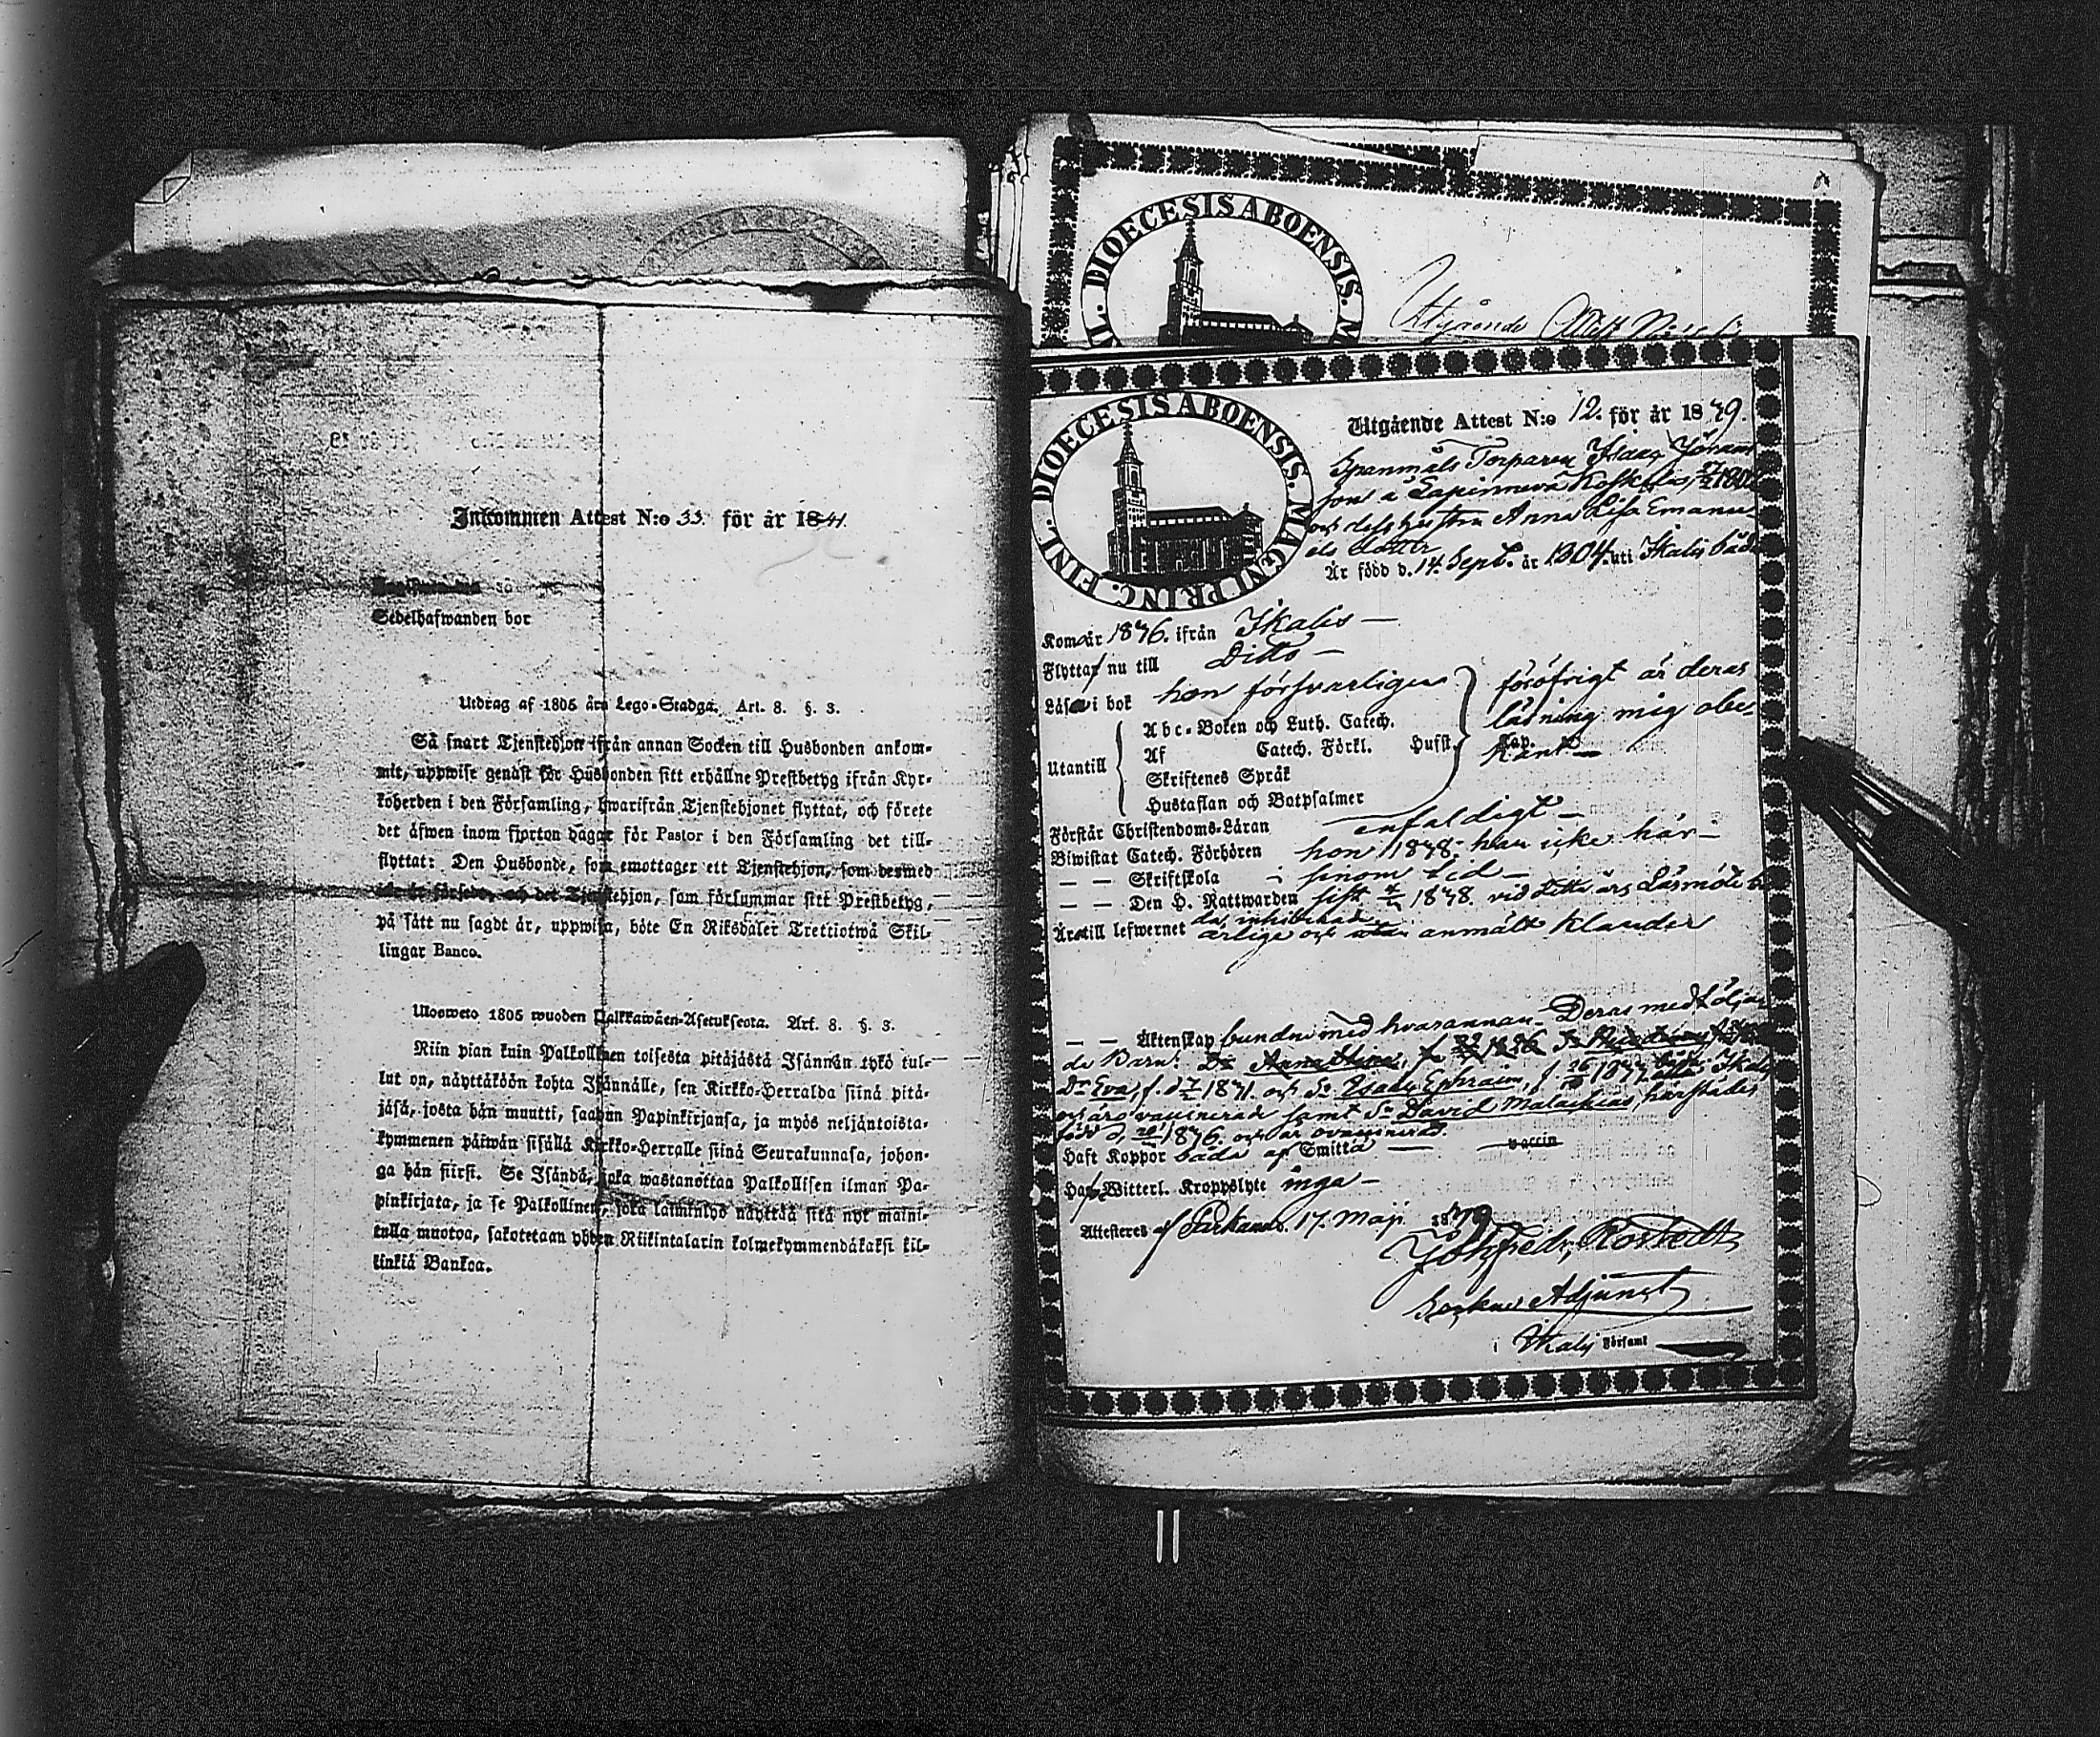 Inkommen Attest N:o 33. för år 1841.
Sedelhafwanden bor
Utdrag af 1805 års Lego-Stadga. Art. 8. §. 3.
Så snart Tjenstehjon ifrån annan Socken till Husbonden ankom-
mit, uppwise genast för Husbonden sitt erhållne Prestbetyg ifrån Kyr-
koherden i den Församling, hwarifrån Tjenstehjonet flyttat, och förete
det äfwen inom fjorton dagar för Pastor i den Församling det till-
flyttat: Den Husbonde, som emottager ett Tjenstehjon, som dermed
icke är försedt, och det Tjenstehjon, som försummar sitt Prestbetyg,
på sätt nu sagdt är, uppwisa, böte En Riksdaler Trettiotwå Skil-
lingar Banco.
Uloosweto 1805 wuoden Palkkawäen-Asetuksesta. Art. 8. §. 3.
Niin pian kuin Palkollinen toisesta pitäjästä Isännän tykö tul-
lut on, näyttäköön kohta Isännälle, sen Kirkko-Herralda siinä pitä-
jäsä, josta hän muutti, saadun Papinkirjansa, ja myös neljäntoista-
kymmenen päiwän sisällä Kirkko-Herralle siinä Seurakunnasa, johon-
ga hän siirsi. Se Isändä, joka wastanottaa Palkollisen ilman Pa-
pinkirjata, ja se Palkollinen, joka laiminlyö näyttää sitä nyt maini-
tulla muotoa, sakotetaan yhden Riikintalarin kolmekymmendäkaksi kil-
linkiä Bankoa.
DIOECESIS ABOENSIS. M
Utgående Attest N:o
DIOECESIS ABOENSIS. MAGNI PRINC. FINL.
Utgående Attest N:o 12. för år 1849.
Spanmåls Torparen Isaac Johans
son å Lapinneva Koskelis,
och dess hustru Anna Lisa Emanu-
els dotter
Är född d. 14 Sept. år 1804. uti Ikalis båda
Kom år 1846. ifrån Ikalis —
Flyttar nu till Ditto —
Läser i bok hon försvarligen
föröfrigt är deras
läsning mig obe-
kant —
Utantill
Abc-Boken och Luth. Catech.
Af Catech. Förkl. Hufst. Kap.
Skriftenes Språk
Hustaflan och Botpsalmer
Förstår Christendoms-Läran enfaldigt —
Biwistat Catech. Förhören hon 1848. han icke här —
— — Skriftskola i sinom tid —
— — Den H. Nattwarden sist 1848. vid detta års Läsmöte
Är till lefwernet ärlige och utan anmält klander
— — Äktenskap bundne med hvarannan — Deras medfölja
de Barn: Dr Anna Stina, f.
Dr Eva, f. d. 1841. och Sn Isaac Ephraim, f. båda i Ikalis
och äro vaccinerade samt Sn David Malachias, härstädes
född d. 1846. och är ovaccinerad.
Haft Koppor båda af Smitta — vaccin
Haft Witterl. Kroppslyte inga —
Attesteras af Parkano. 17. Maji 1849
Joh. Fredr. Rostedt
Sockne Adjunct
i Ikalis Församl